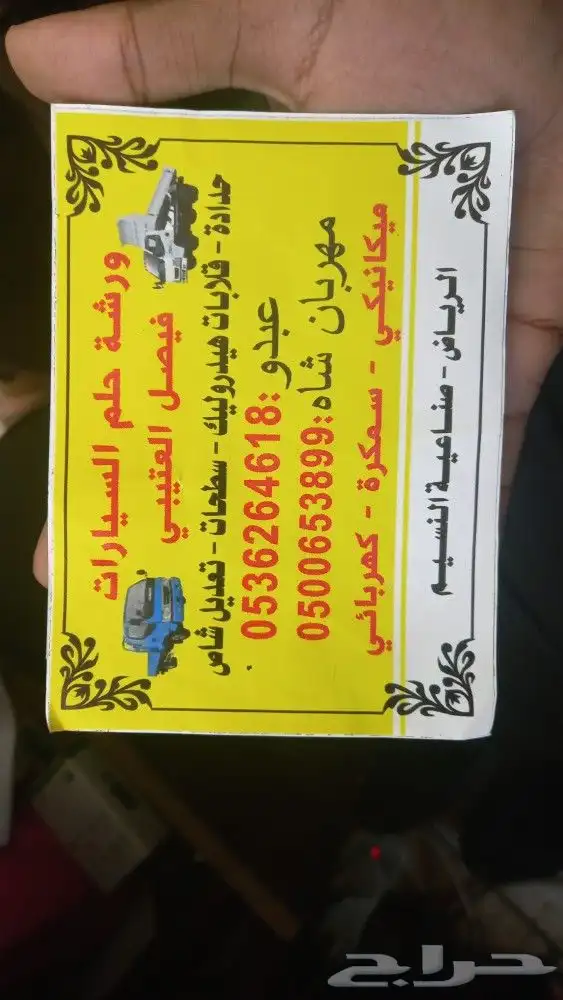 ورشة حلم السيارات
فيصل العتيبي
حدادة - قلابات هيدروليك - سطحات - تعديل شاص
عبدو :0536264618
مهربان شاه:0500653899
ميكانيكي - سمكرة - كهربائي
الرياض - صناعية النسيم
حراج